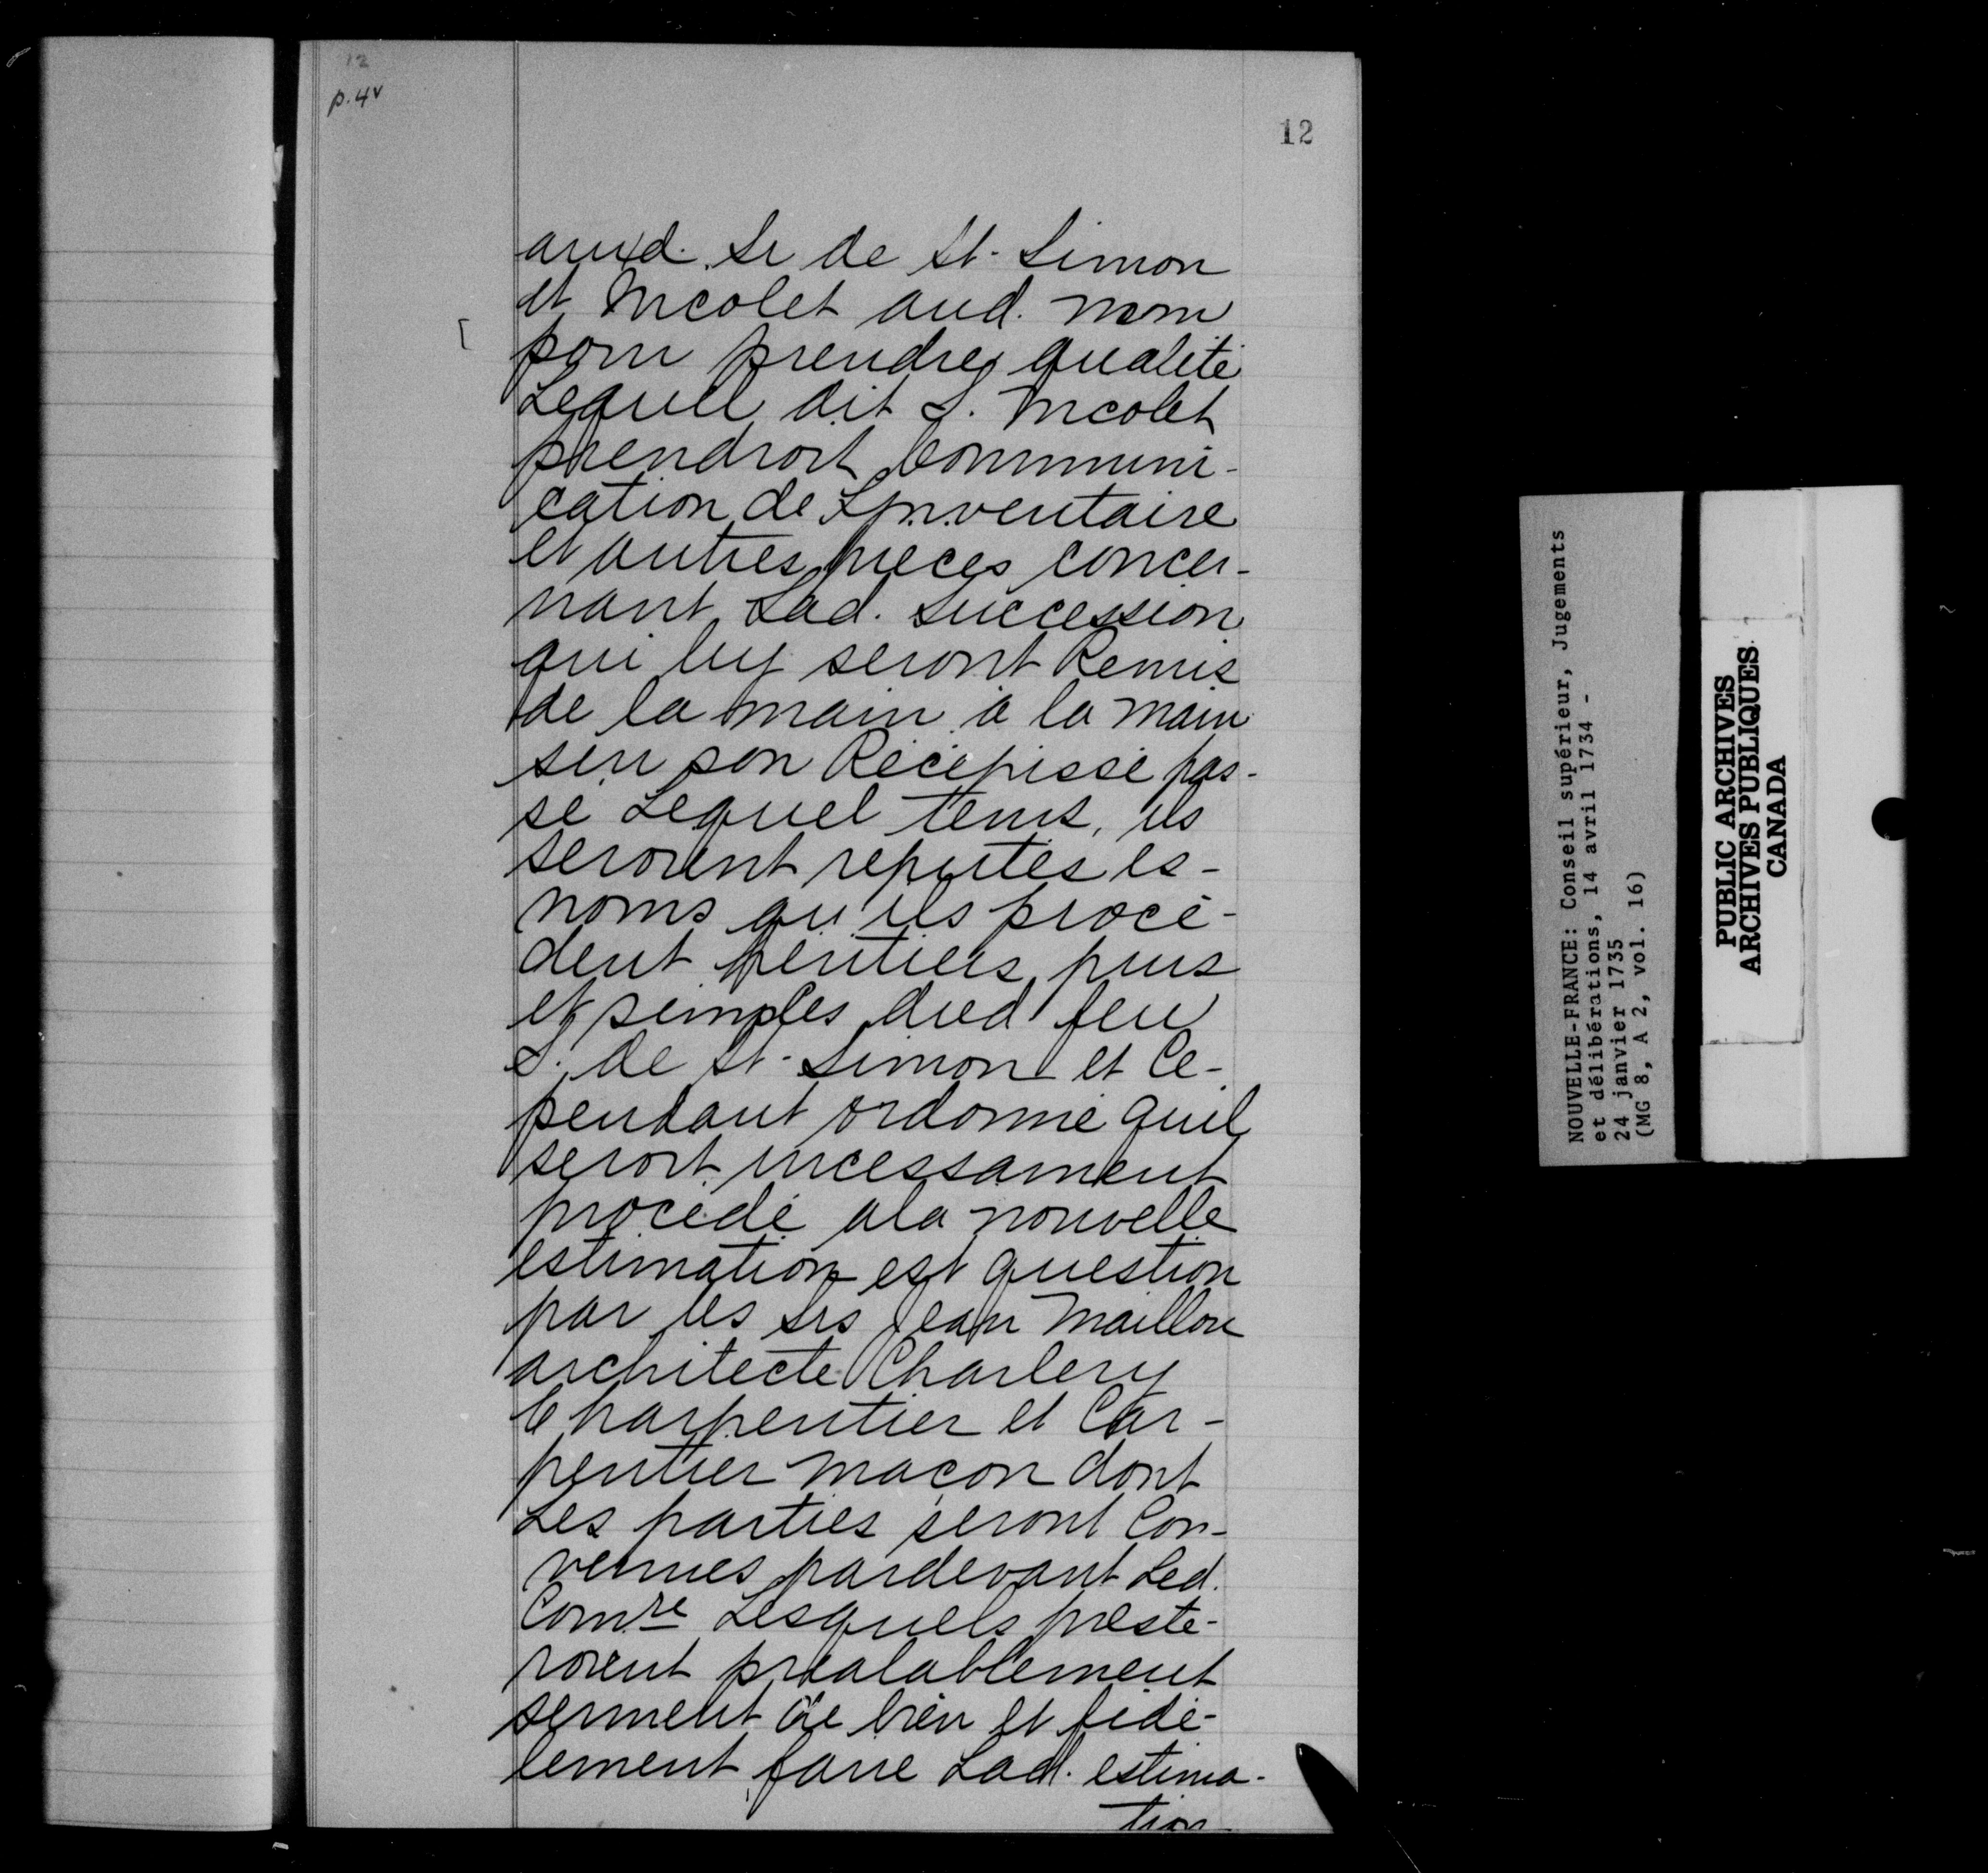 12
p. 4v
12
auxd. Sr de St-Simon
et Nicolet aud. nom
pour prendre qualité
Lequel dit S. Nicolet
prendroit Communi-
cation de L'inventaire
et autres pieces concer-
nant Lad. Succession
qui luy seront Remis
de la main à la main
sur son Récépissé pas-
sé Lequel tems, ils
seroient reputés es-
noms qu'ils procé-
dent héritiers purs
et simples dud feu
S. de St-Simon et Ce-
pendant ordonné quil
seroit incessament
procédé ala nouvelle
estimation est question
par les Srs Jean Maillou
architecte Charlery
Charpentier et Car-
pentier maçon dont
Les parties seront Con-
venues pardevant Led.
Comre Lesquels preste-
roient préalablement
serment de bien et fidé-
lement faire Lad. estima-
tion
NOUVELLE-FRANCE: Conseil supérieur, Jugements
et délibérations, 14 avril 1734 -
24 janvier 1735
(MG 8, A 2, vol. 16)
PUBLIC ARCHIVES
ARCHIVES PUBLIQUES
CANADA